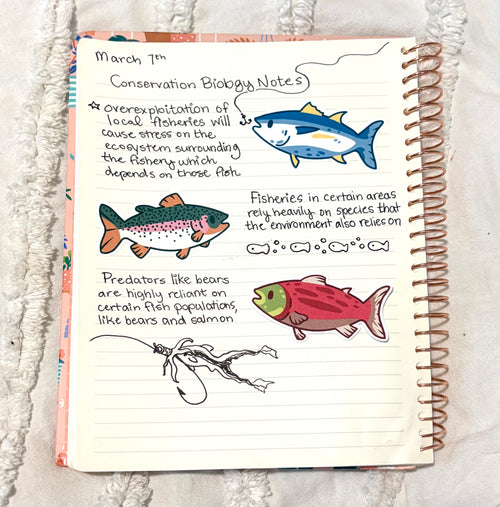 March 7th
Conservation Biology Notes
☆ overexploitation of
local fisheries will
cause stress on the
ecosystem surrounding
the fishery which
depends on those fish
Fisheries in certain areas
rely heavily on species that
the environment also relies on
Predators like bears
are highly reliant on
certain fish populations,
like bears and salmon